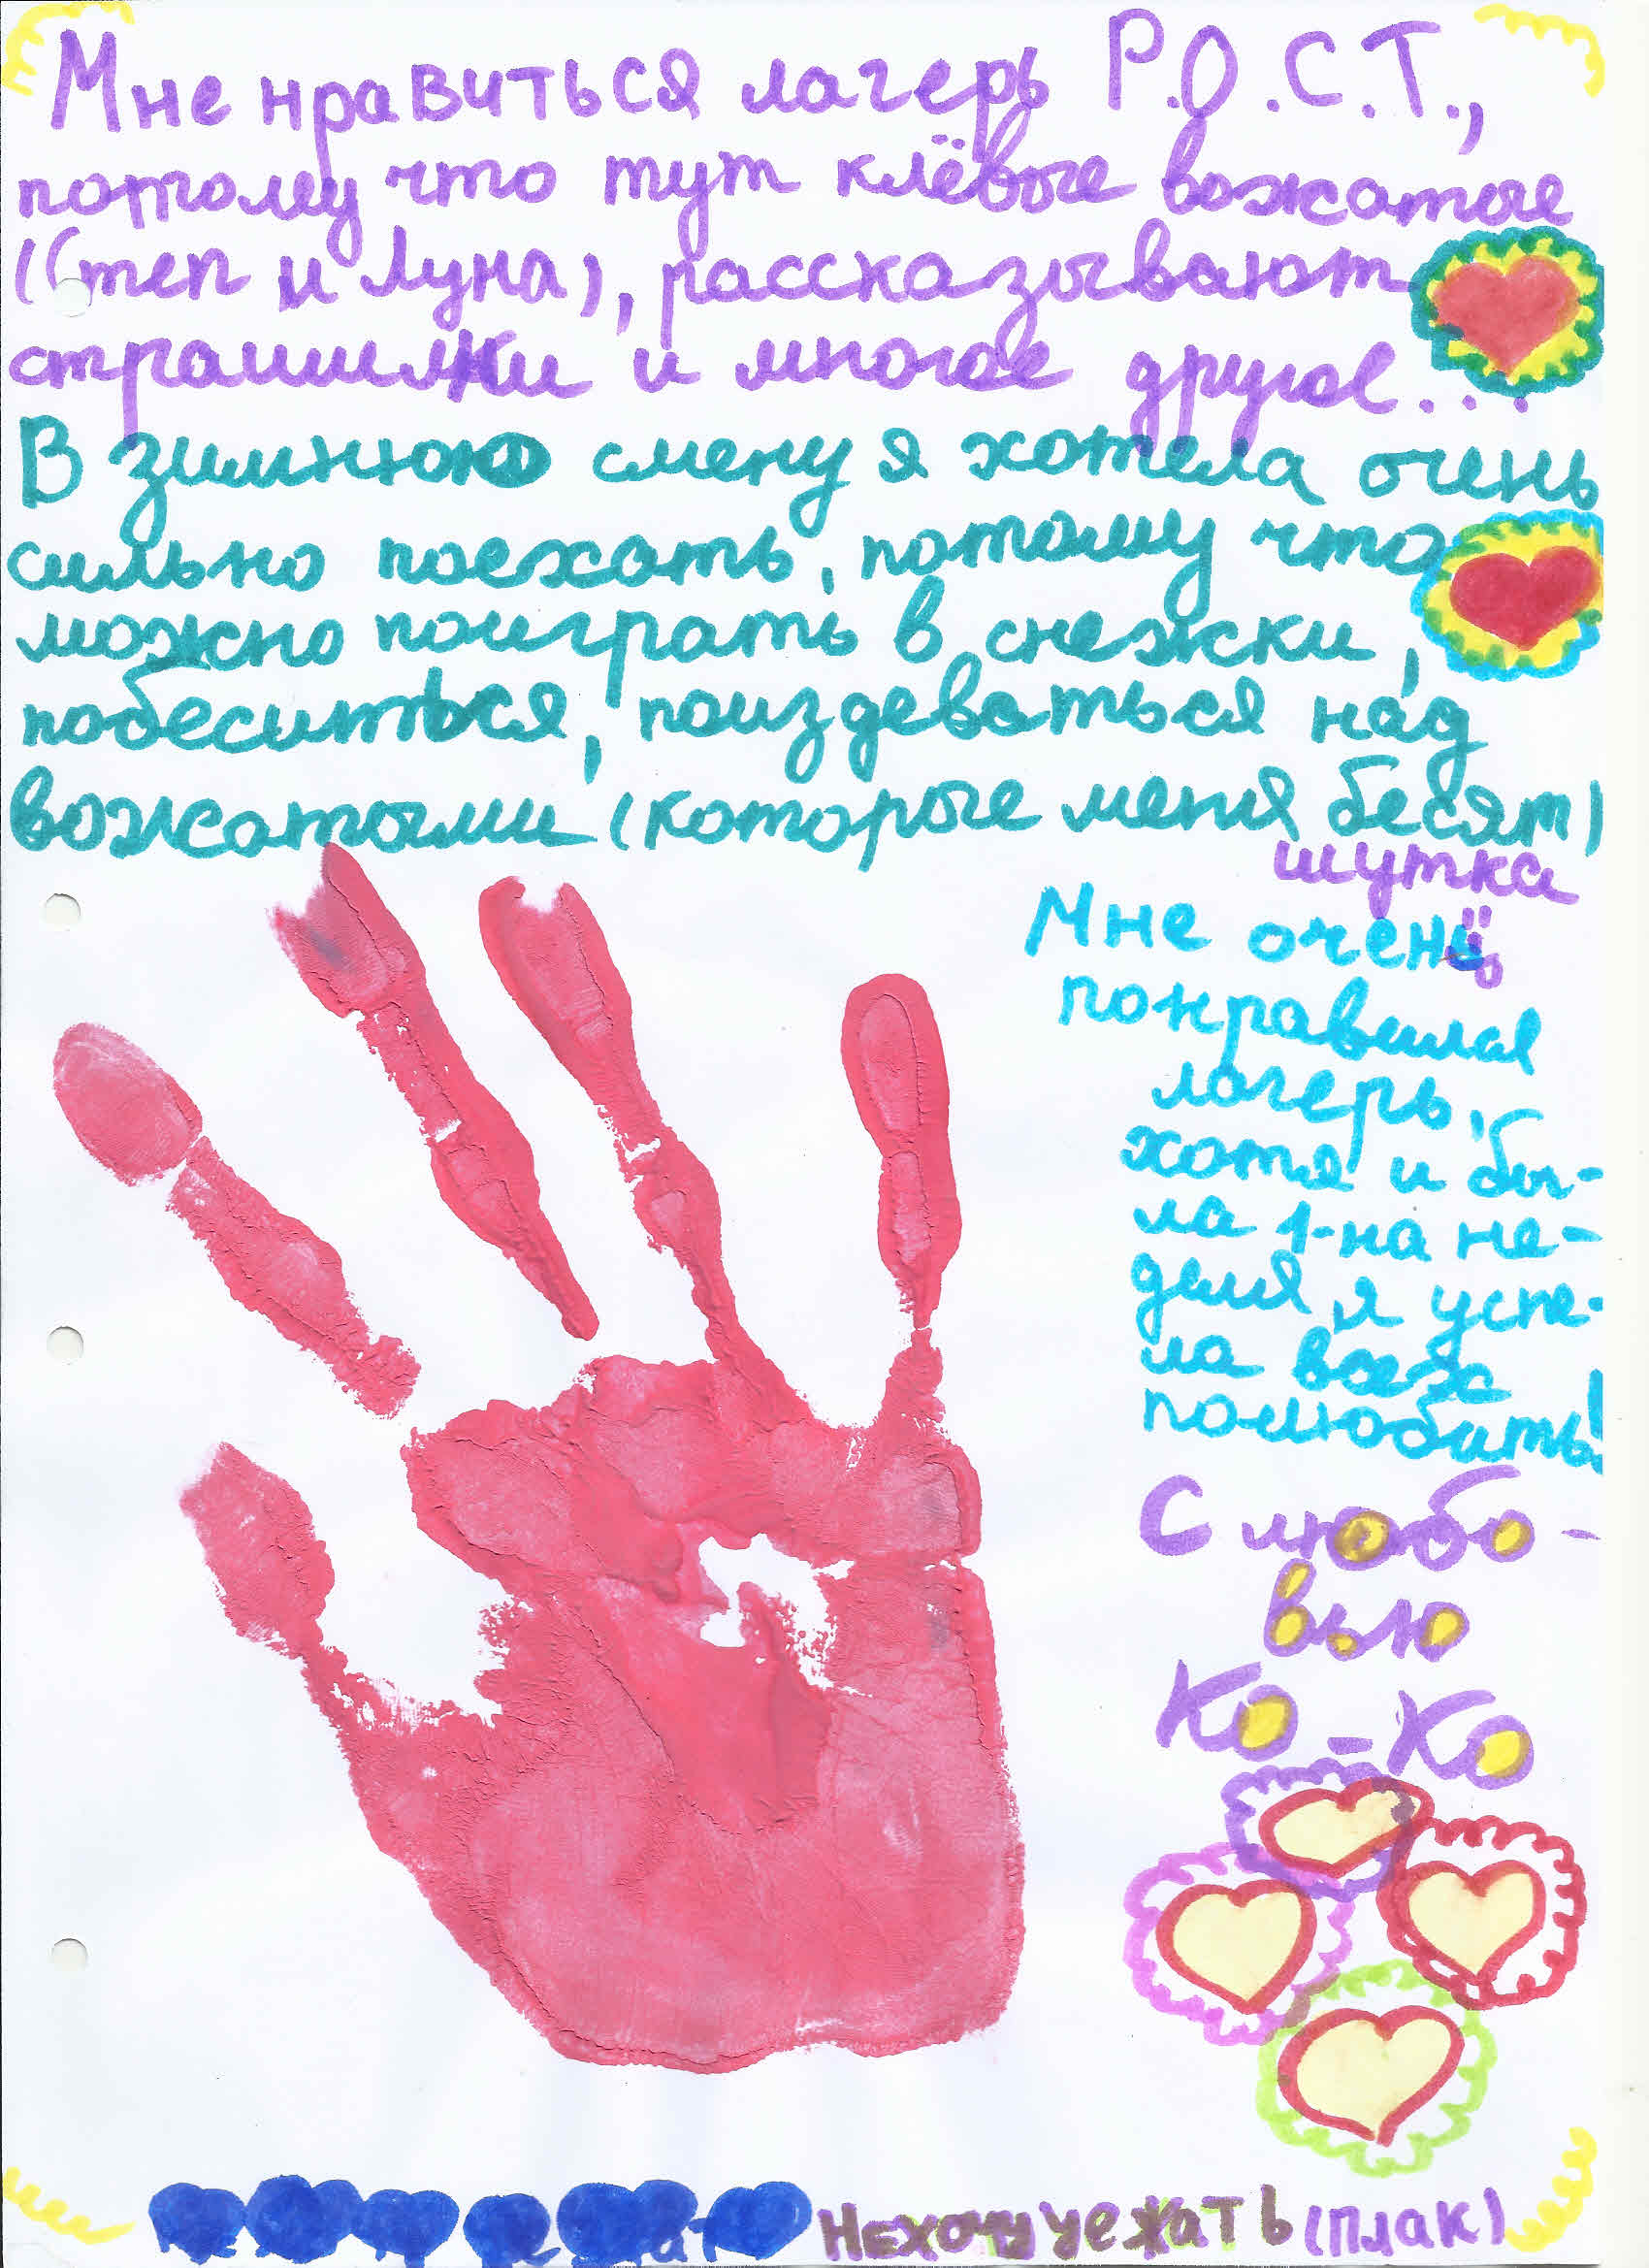 Мне нравиться лагерь Р.О.С.Т.,
потому что тут клёвые вожатые
(Степ и Луна), рассказывают
страшилки и многое другое...
В зимнюю смену я хотела очень
сильно поехать, потому что
можно поиграть в снежки,
побеситься, поиздеваться над
вожатыми (которые меня бесят)
шутка
Мне очень
понравился
лагерь,
хотя и бы-
ла 1-на не-
деля я успе-
ла всех
полюбить!
С любо-
вью
Ко-Ко
Не хочу уежать (плак)